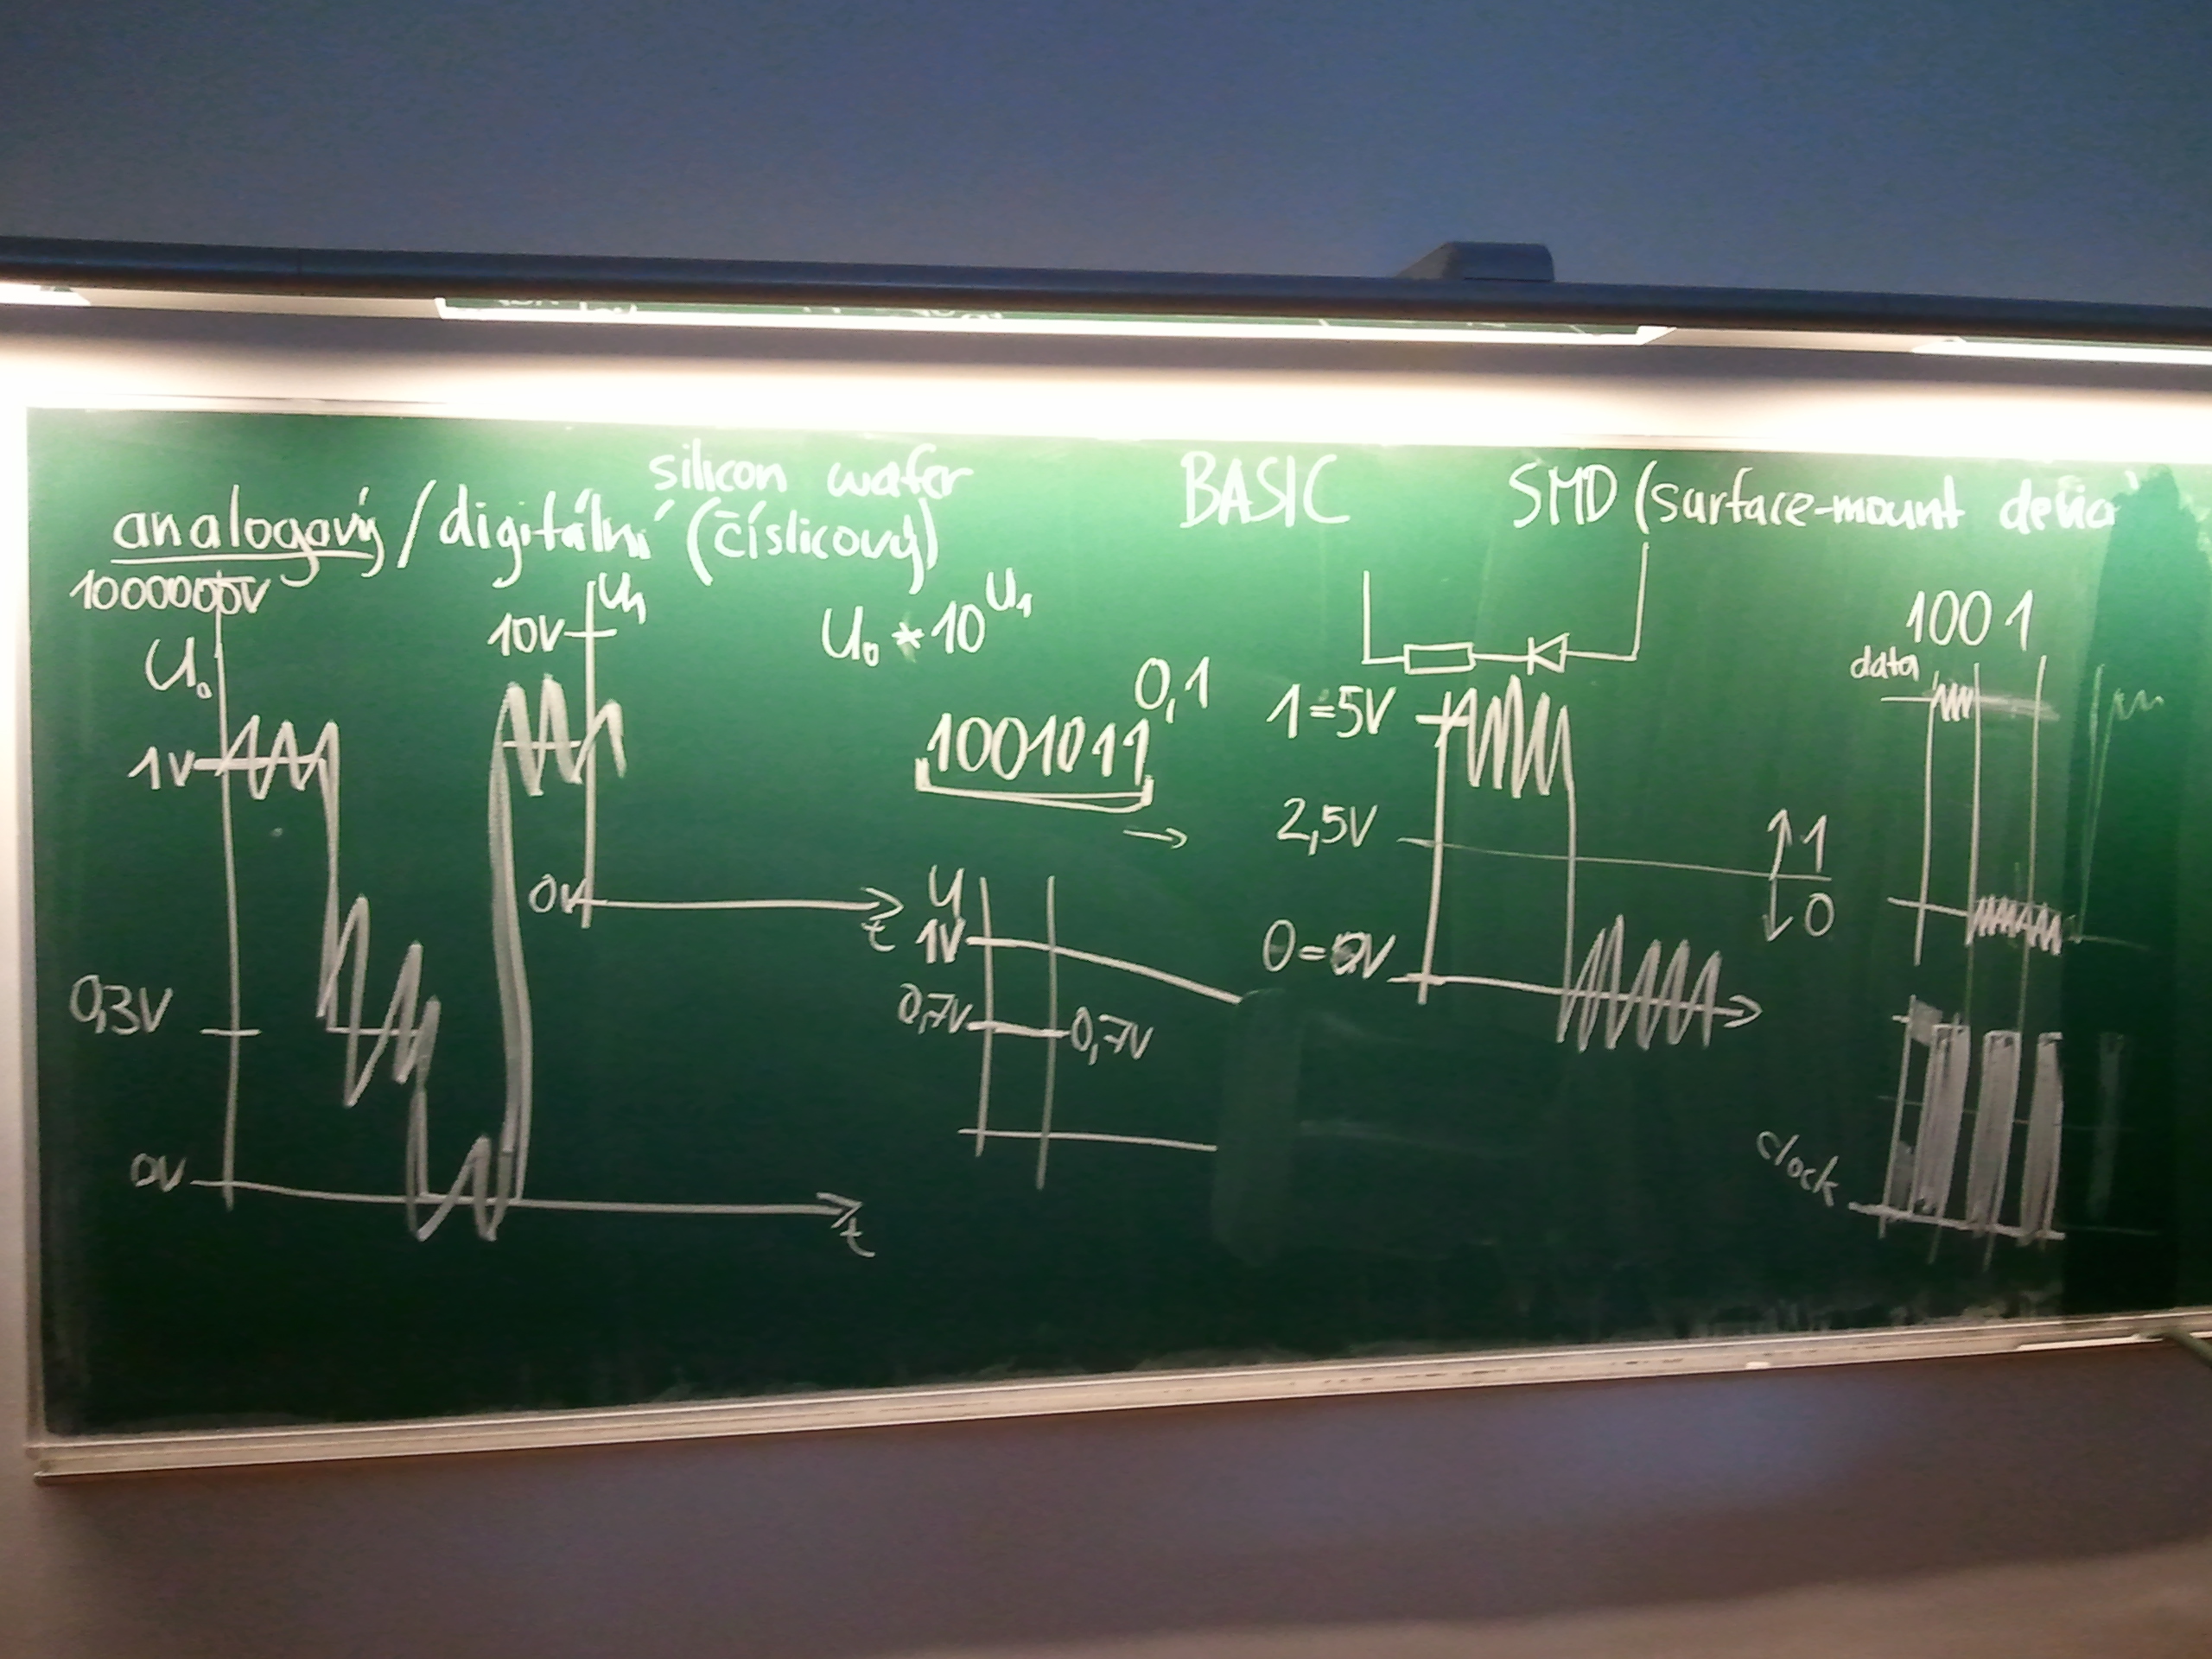 silicon wafer
BASIC
SMD (surface-mount devic
analogový / digitální (číslicový)
1000000V
U₀
1V
0,3V
0V
t
U₁
10V
0V
t
U₀ * 10^U₁
0,1
1001011
→
U
1V
0,7V
0,7V
1=5V
2,5V
0=0V
↑1
↓0
1001
data
clock